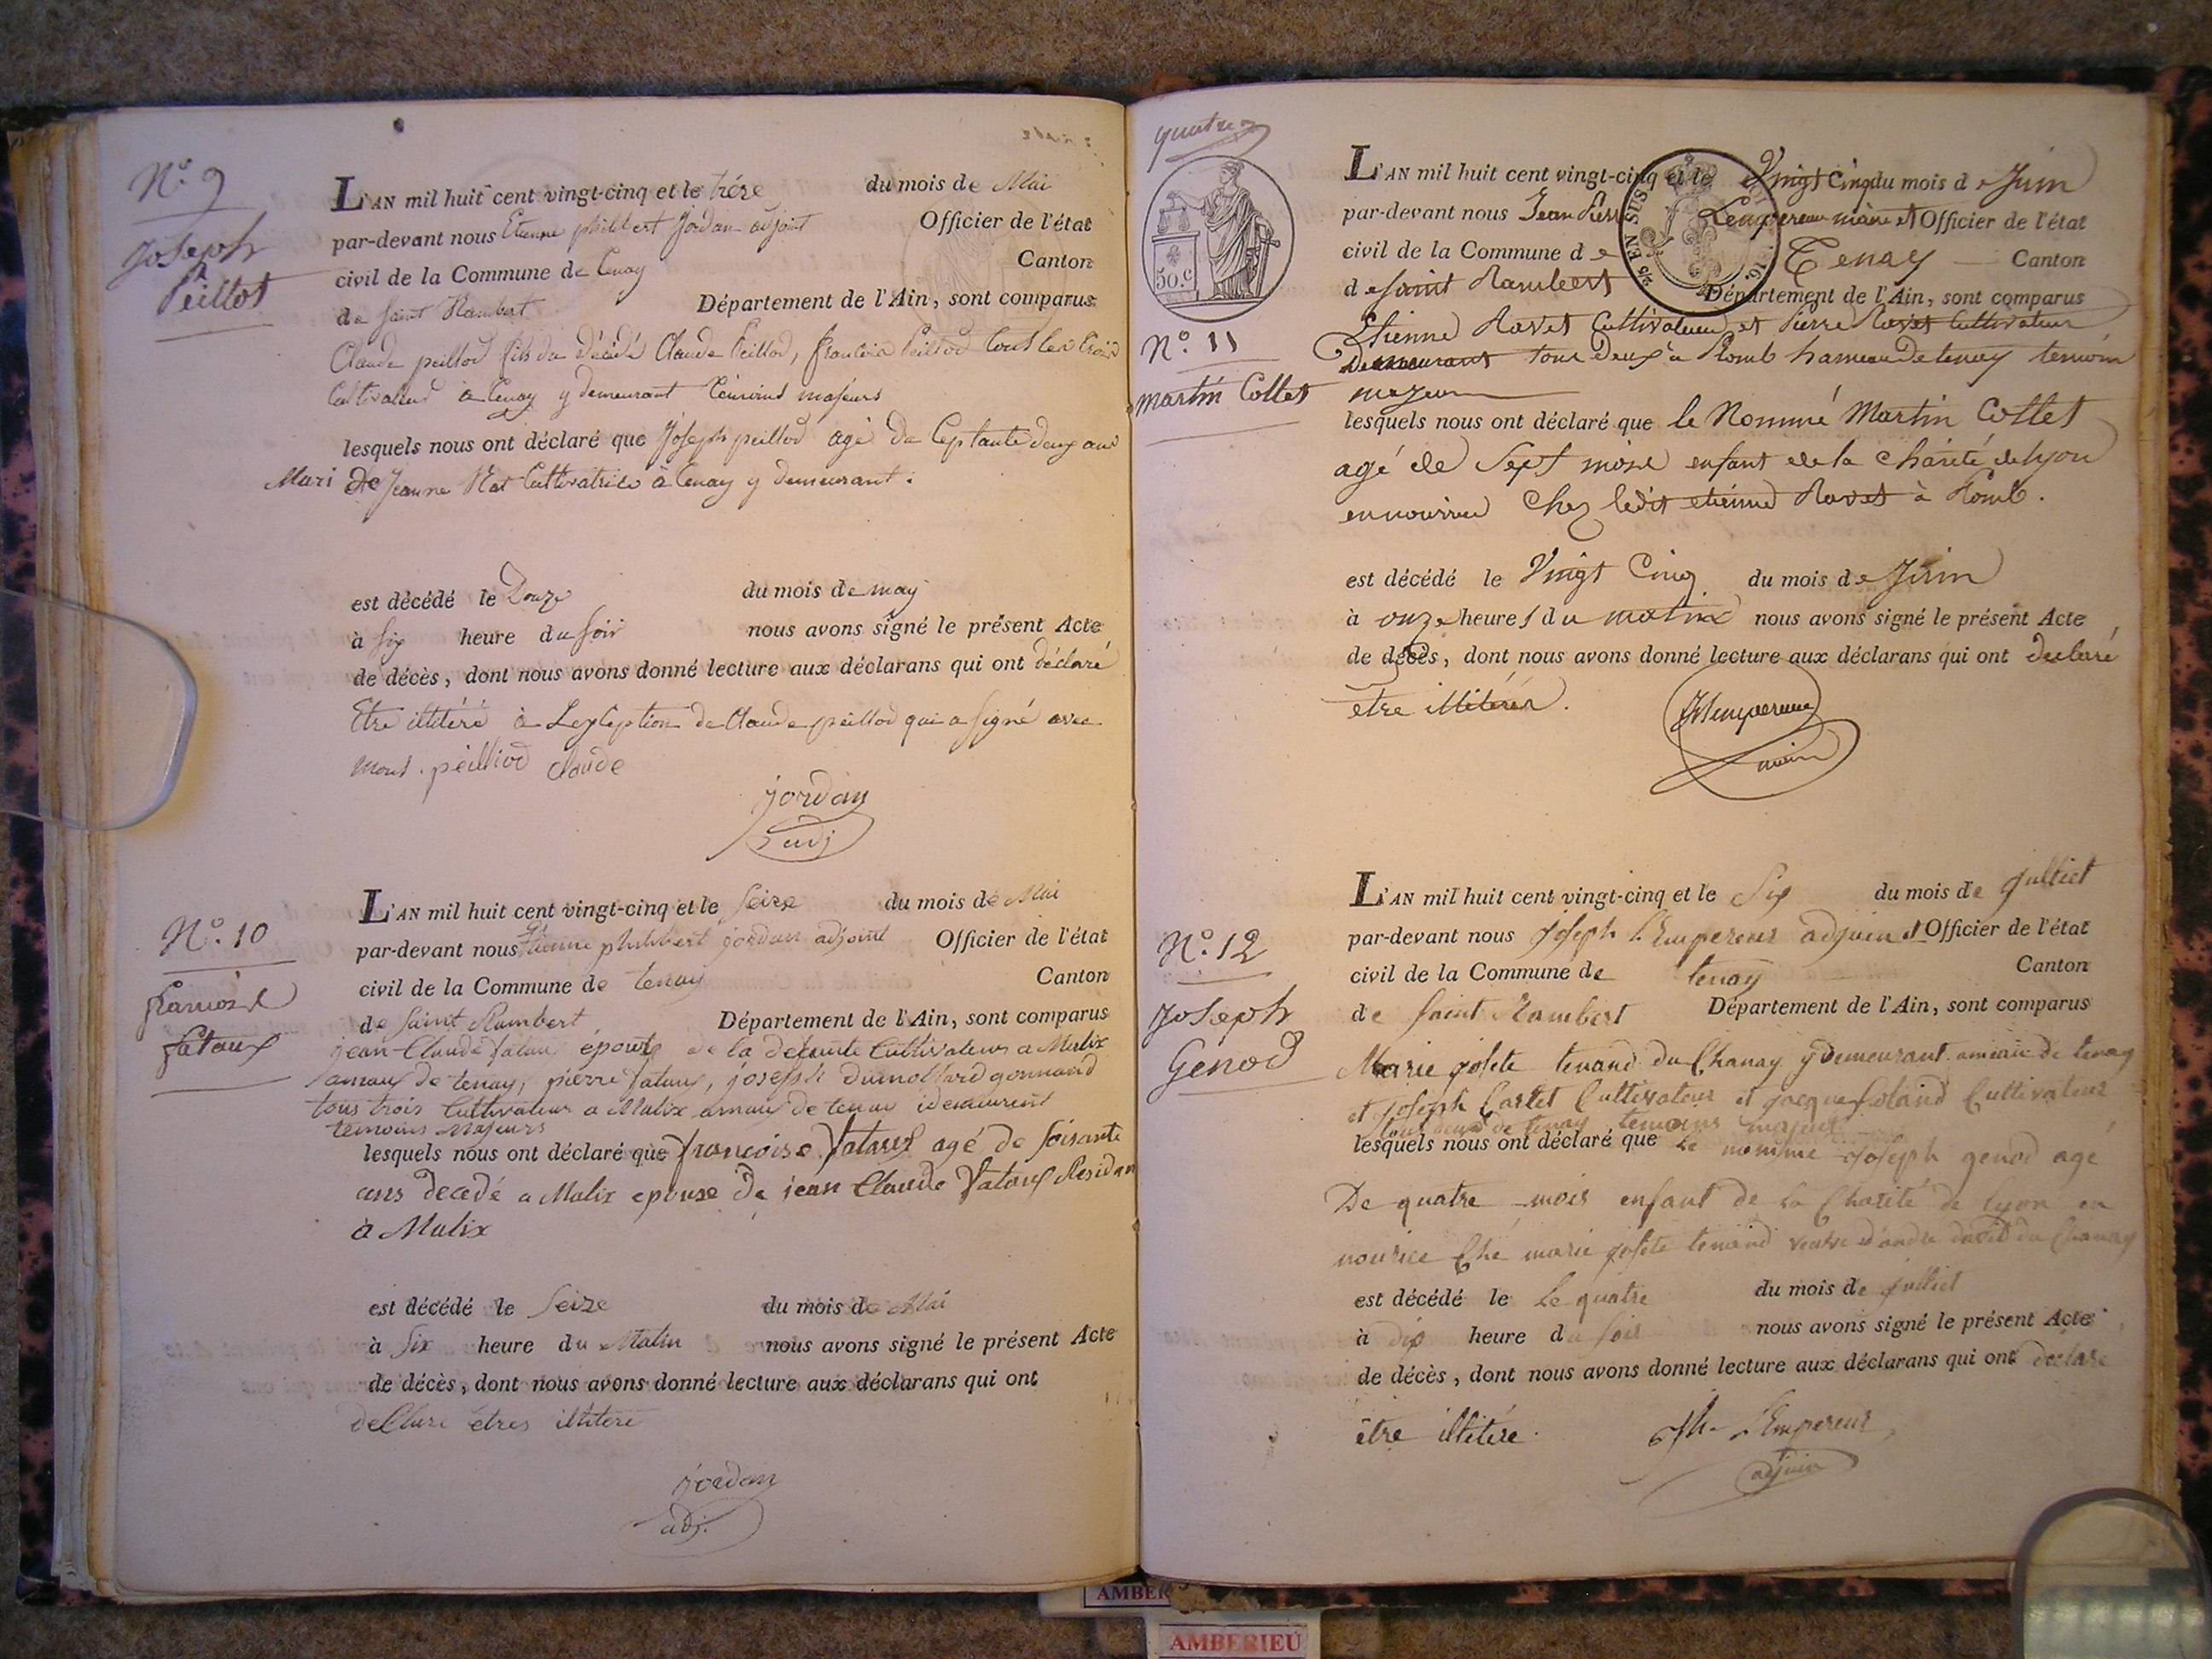 N.° 9
Joseph
Peillot
L'AN mil huit cent vingt-cinq et le tréze du mois de Mai
par-devant nous Etienne philibert Jordan adjoint Officier de l'état
civil de la Commune de Tenay Canton
de Saint Rambert Département de l'Ain, sont comparus
Claude peillod fils du décédé Claude Peillod, françois Peillod tous les trois
Cultivateurs à Tenay y demeurant témoins majeurs
lesquels nous ont déclaré que Joseph peillod agé de Septante deux ans
Mari de Jeanne Cultivatrice à Tenay y demeurant.
est décédé le Douze du mois de may
à six heure du soir nous avons signé le présent Acte
de décès, dont nous avons donné lecture aux déclarans qui ont déclaré
Etre illitéré à Lexception de Claude peillod qui a signé avec
nous. peilliod claude
jordan
adj
N.° 10
fatoux
L'AN mil huit cent vingt-cinq et le seize du mois de Mai
par-devant nous Etienne philibert jordan adjoint Officier de l'état
civil de la Commune de tenay Canton
de Saint Rambert Département de l'Ain, sont comparus
jean-Claude fatoux épouse de la defunte Cultivateur a Malix
amaux de tenay, pierre fatoux, joseph dumollard gonnand
tous trois Cultivateur a Malix amaux de tenay idemeurent
temoins Majeurs
lesquels nous ont déclaré que francoise fatoux agé de soisante
ans decedé a Malix epouse de jean Claude fatoux Residan
à Malix
est décédé le Seize du mois de Mai
à Six heure du Matin nous avons signé le présent Acte
de décès, dont nous avons donné lecture aux déclarans qui ont
declare etres illitere
jordan
adj.
quatre
50. c
2/5 EN SUS
N.° 11
martin Collet
L'AN mil huit cent vingt-cinq et le Vingt Cinq du mois de Juin
par-devant nous Jean Lempereur maire et Officier de l'état
civil de la Commune de Tenay Canton
de saint Rambert Département de l'Ain, sont comparus
Etienne Ravet Cultivateur et Pierre Ravet Cultivateur
Demeurant tous Deux à Plomb hameau de tenay temoin
majeur
lesquels nous ont déclaré que le Nommé Martin Collet
agé de Sept mois enfant de la Charité de lyon
en nourrice Chez ledit etienne Ravet à Plomb.
est décédé le Vingt Cinq du mois de Juin
à onze heures du matin nous avons signé le présent Acte
de décès, dont nous avons donné lecture aux déclarans qui ont declaré
etre illiterér.
Lempereur
maire
N.° 12
Joseph
Genod
L'AN mil huit cent vingt-cinq et le Six du mois de julliet
par-devant nous joseph L'Empereur adjuin et Officier de l'état
civil de la Commune de tenay Canton
de Saint Rambert Département de l'Ain, sont comparus
Marie josete tenand du Chanay y demeurant amérie de tenay
et joseph Carlet Cultivateur et jacque Cultivateur
tous deux de tenay temoins majeur
lesquels nous ont déclaré que Le nommé joseph genod agé
De quatre mois enfant de la Charité de lyon en
nourice Ché marie josete tenand veuve d'andre david du Chanay
est décédé le Le quatre du mois de julliet
à dix heure du soir nous avons signé le présent Acte
de décès, dont nous avons donné lecture aux déclarans qui ont déclaré
être illitéré.
Jh. L'Empereur
adjuin
AMBER
AMBERIEU